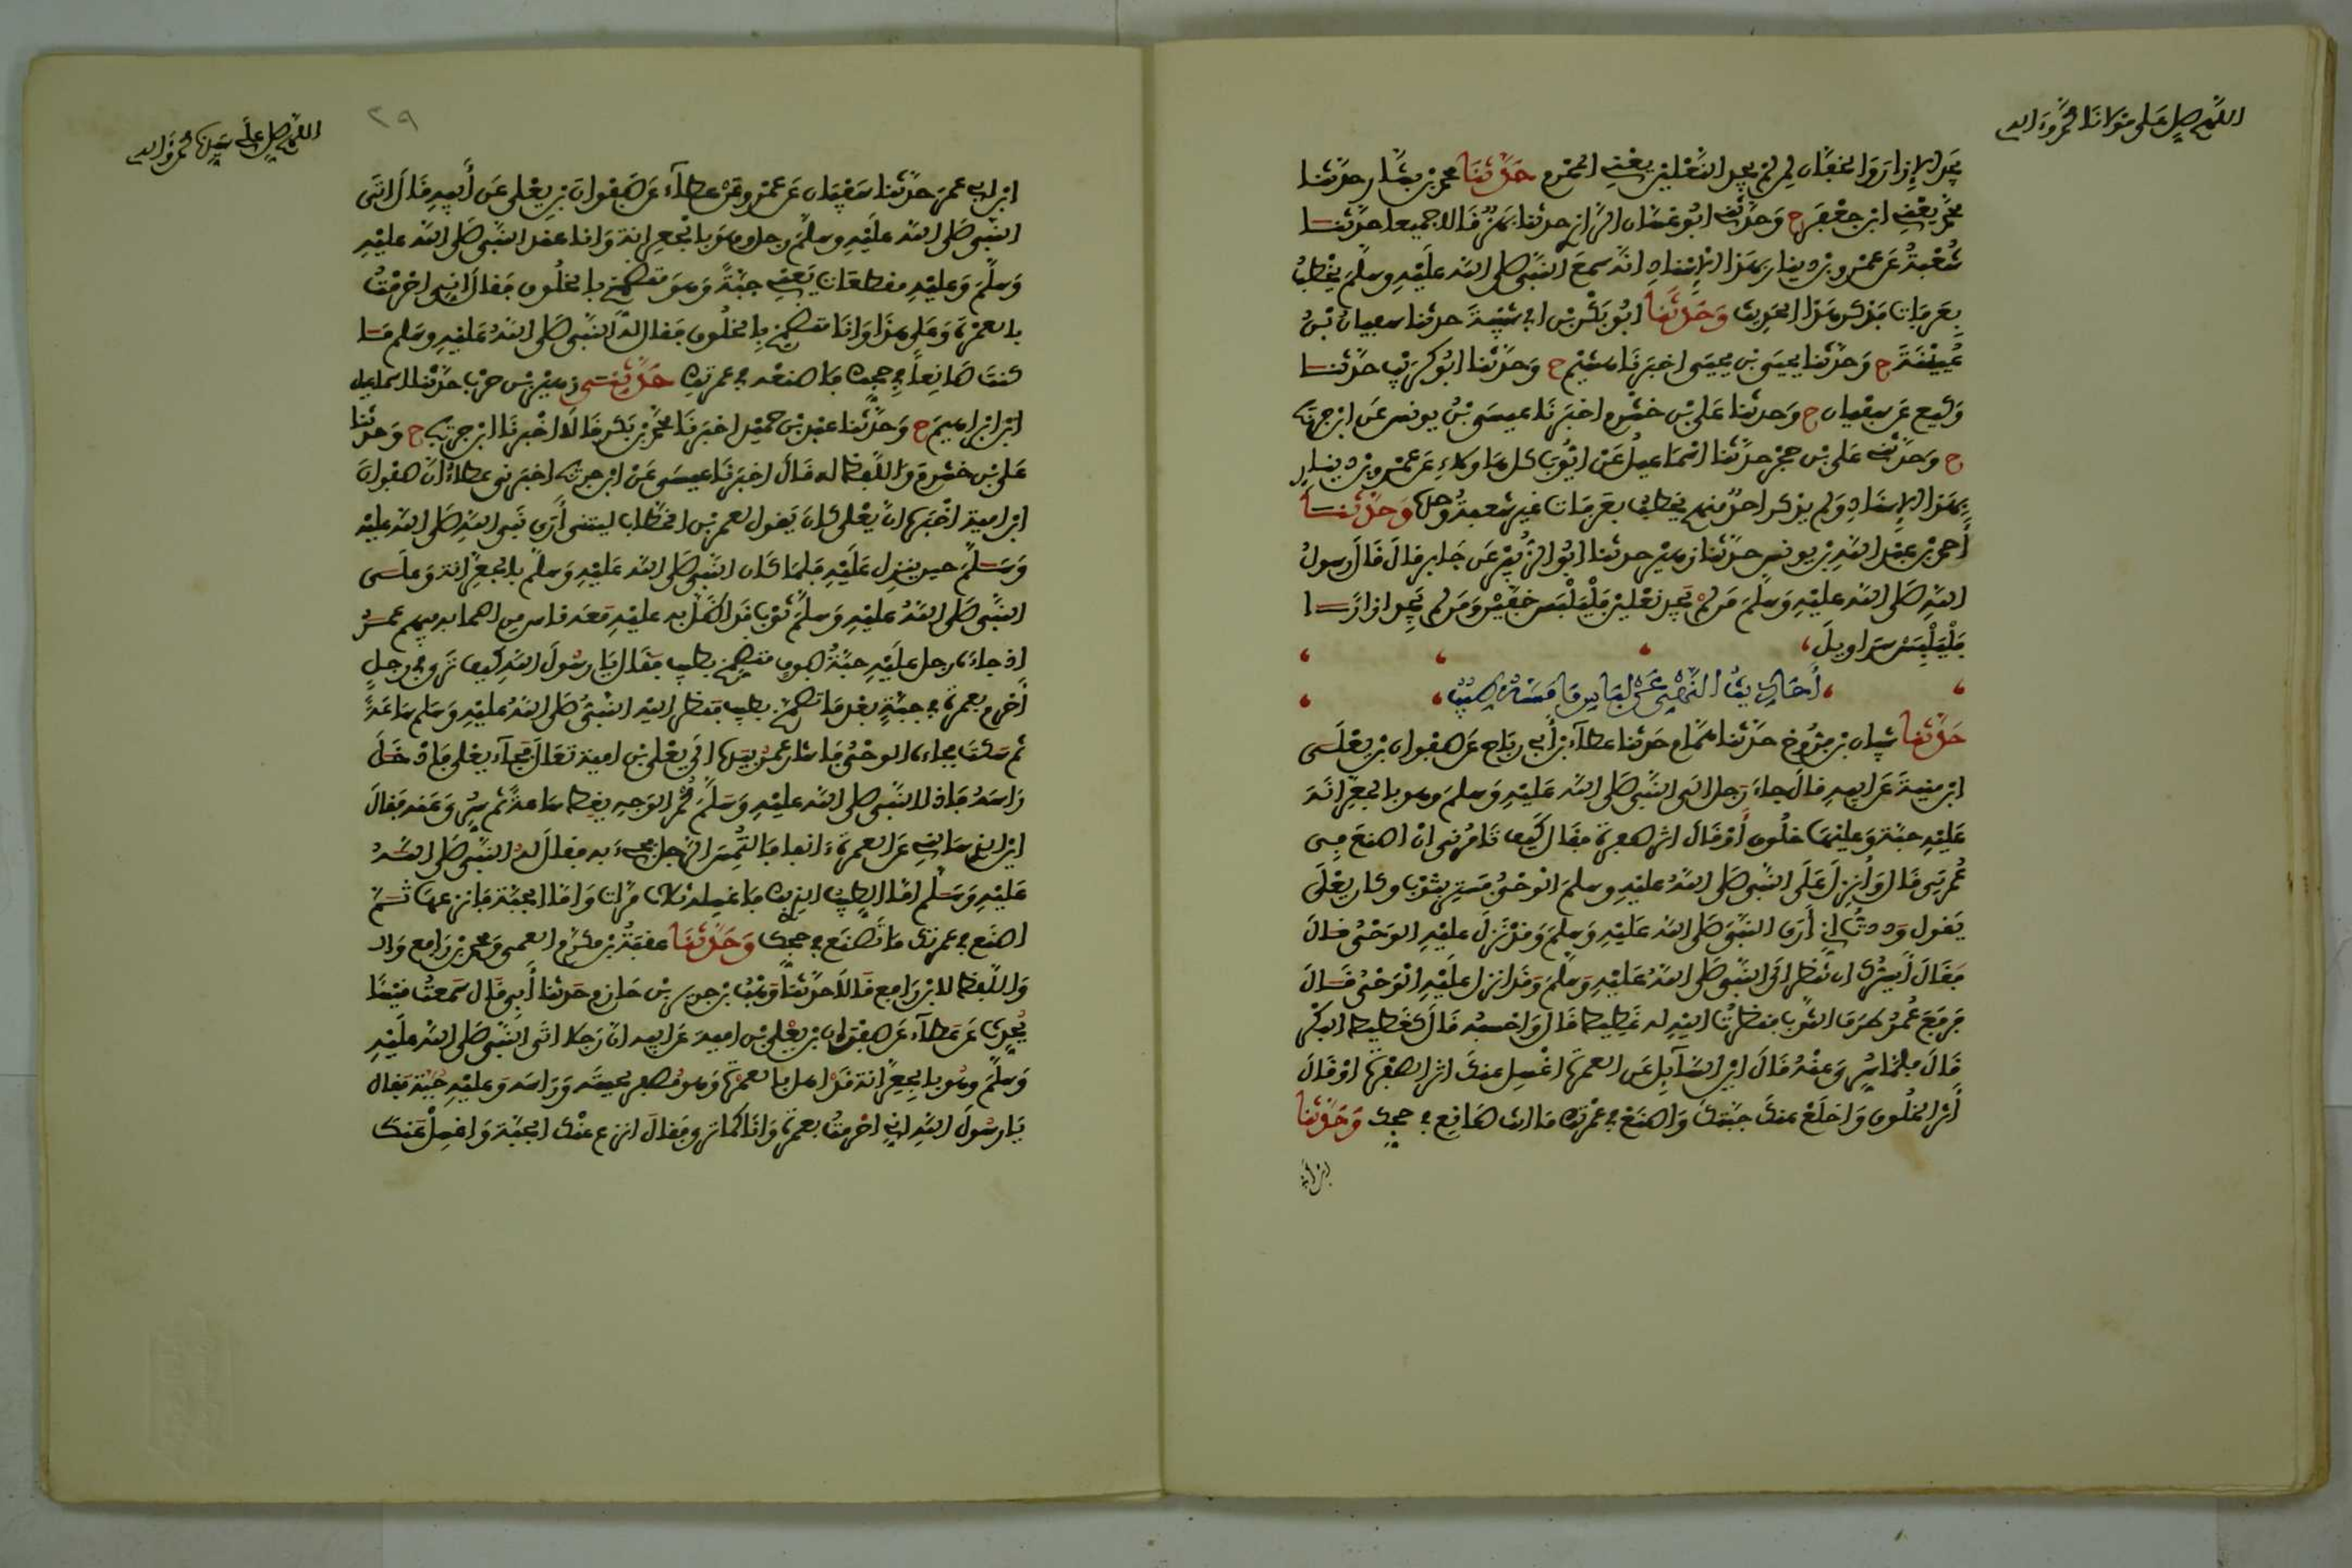 اللهم صل على مولانا محمد وءاله
يجد الإزار والخفان لمن لم يجد النعلين يعني المحرم حدثنا محمد بن بشار حدثنا
محمد يعني ابن جعفر ح وحدثني ابو غسان الرازي حدثنا بهز قالا جميعا حدثنا
شعبة عن عمرو بن دينار بهذا الإسناد انه سمع النبي صلى الله عليه وسلم يخطب
بعرفات فذكر هذا الحديث وحدثنا ابو بكر بن ابي شيبة حدثنا سفيان بن
عيينة ح وحدثنا يحيى بن يحيى اخبرنا هشيم ح وحدثنا ابو كريب حدثنا
وكيع عن سفيان ح وحدثنا علي بن خشرم اخبرنا عيسى بن يونس عن ابن جريج
ح وحدثني علي بن حجر حدثنا اسماعيل عن ايوب كل هاولاء عن عمرو بن دينار
بهذا الإسناد ولم يذكر احد منهم يخطب بعرفات غير شعبة وحده وحدثنا
أحمد بن عبد الله بن يونس حدثنا زهير حدثنا ابو الزبير عن جابر قال قال رسول
الله صلى الله عليه وسلم من لم يجد نعلين فليلبس خفين ومن لم يجد ازارا
فليلبس سراويل
أحاديث النهي عن لباس ما مسه طيب
حدثنا شيبان بن فروخ حدثنا همام حدثنا عطاء بن أبي رباح عن صفوان بن يعلى
ابن منية عن ابيه قال جاء رجل الى النبي صلى الله عليه وسلم وهو بالجعرانة
عليه جبة وعليها خلوق أو قال اثر صفرة فقال كيف تامرني ان اصنع في
عمرتي قال وأنزل على النبي صلى الله عليه وسلم الوحي فستر بثوب وكان يعلى
يقول وددت أني أرى النبي صلى الله عليه وسلم وقد نزل عليه الوحي قال
فقال أيسرك ان تنظر الى النبي صلى الله عليه وسلم وقد انزل عليه الوحي قال
فرفع عمر طرف الثوب فنظرت اليه له غطيط قال واحسبه قال كغطيط البكر
قال فلما سري عنه قال اين السائل عن العمرة اغسل عنك اثر الصفرة او قال
أثر الخلوق واخلع عنك جبتك واصنع في عمرتك ما انت صانع في حجك وحدثنا
ابن أبي
اللهم صل على سيدنا محمد وءاله
٢٩
ابن ابي عمر حدثنا سفيان عن عمرو عن عطاء عن صفوان بن يعلى عن أبيه قال اتى
النبي صلى الله عليه وسلم رجل وهو بالجعرانة وانا عند النبي صلى الله عليه
وسلم وعليه مقطعات يعني جبة وهو متضمخ بالخلوق فقال اني احرمت
بالعمرة وعلي هذا وانا متضمخ بالخلوق فقال له النبي صلى الله عليه وسلم ما
كنت صانعا في حجك فاصنعه في عمرتك حدثني زهير بن حرب حدثنا اسماعيل
ابن ابراهيم ح وحدثنا عبد بن حميد اخبرنا محمد بن بكر قالا اخبرنا ابن جريج ح وحدثنا
علي بن خشرم واللفظ له قال اخبرنا عيسى عن ابن جريج اخبرني عطاء ان صفوان
ابن امية اخبره ان يعلى كان يقول لعمر بن الخطاب ليتني أرى نبي الله صلى الله عليه
وسلم حين ينزل عليه فلما كان النبي صلى الله عليه وسلم بالجعرانة وعلى
النبي صلى الله عليه وسلم ثوب قد اظل به عليه معه ناس من اصحابه فيهم عمر
إذ جاءه رجل عليه جبة صوف متضمخ بطيب فقال يا رسول الله كيف ترى في رجل
أحرم بعمرة في جبة بعد ما تضمخ بطيب فنظر اليه النبي صلى الله عليه وسلم ساعة
ثم سكت فجاءه الوحي فاشار عمر بيده الى يعلى بن امية تعال فجاء يعلى فادخل
راسه فاذا النبي صلى الله عليه وسلم محمر الوجه يغط ساعة ثم سري عنه فقال
اين الذي سالني عن العمرة ءانفا فالتمس الرجل فجيء به فقال له النبي صلى الله
عليه وسلم اما الطيب الذي بك فاغسله ثلاث مرات واما الجبة فانزعها ثم
اصنع في عمرتك ما تصنع في حجك وحدثنا عقبة بن مكرم العمي ومحمد بن رافع
واللفظ لابن رافع قالا حدثنا وهب بن جرير بن حازم حدثنا أبي قال سمعت قيسا
يحدث عن عطاء عن صفوان بن يعلى بن امية عن ابيه ان رجلا اتى النبي صلى الله عليه
وسلم وهو بالجعرانة قد اهل بالعمرة وهو مصفر لحيته وراسه وعليه جبة فقال
يا رسول الله اني احرمت بعمرة وانا كما ترى فقال انزع عنك الجبة واغسل عنك